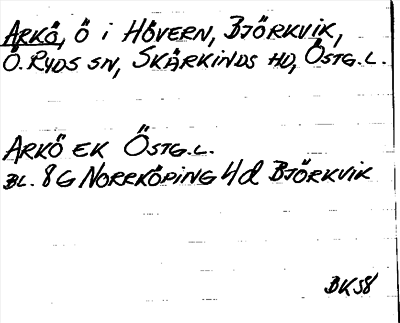 ARKÖ, Ö i HÖVERN, BJÖRKVIK,
Ö. RYDS SN, SKÄRKINDS HD, ÖSTG.L.
ARKÖ EK ÖSTG.L.
BL. 8G NORRKÖPING 4d BJÖRKVIK
BK58